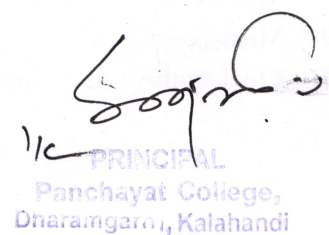 I/C
PRINCIPAL
Panchayat College,
Dharamgarh, Kalahandi